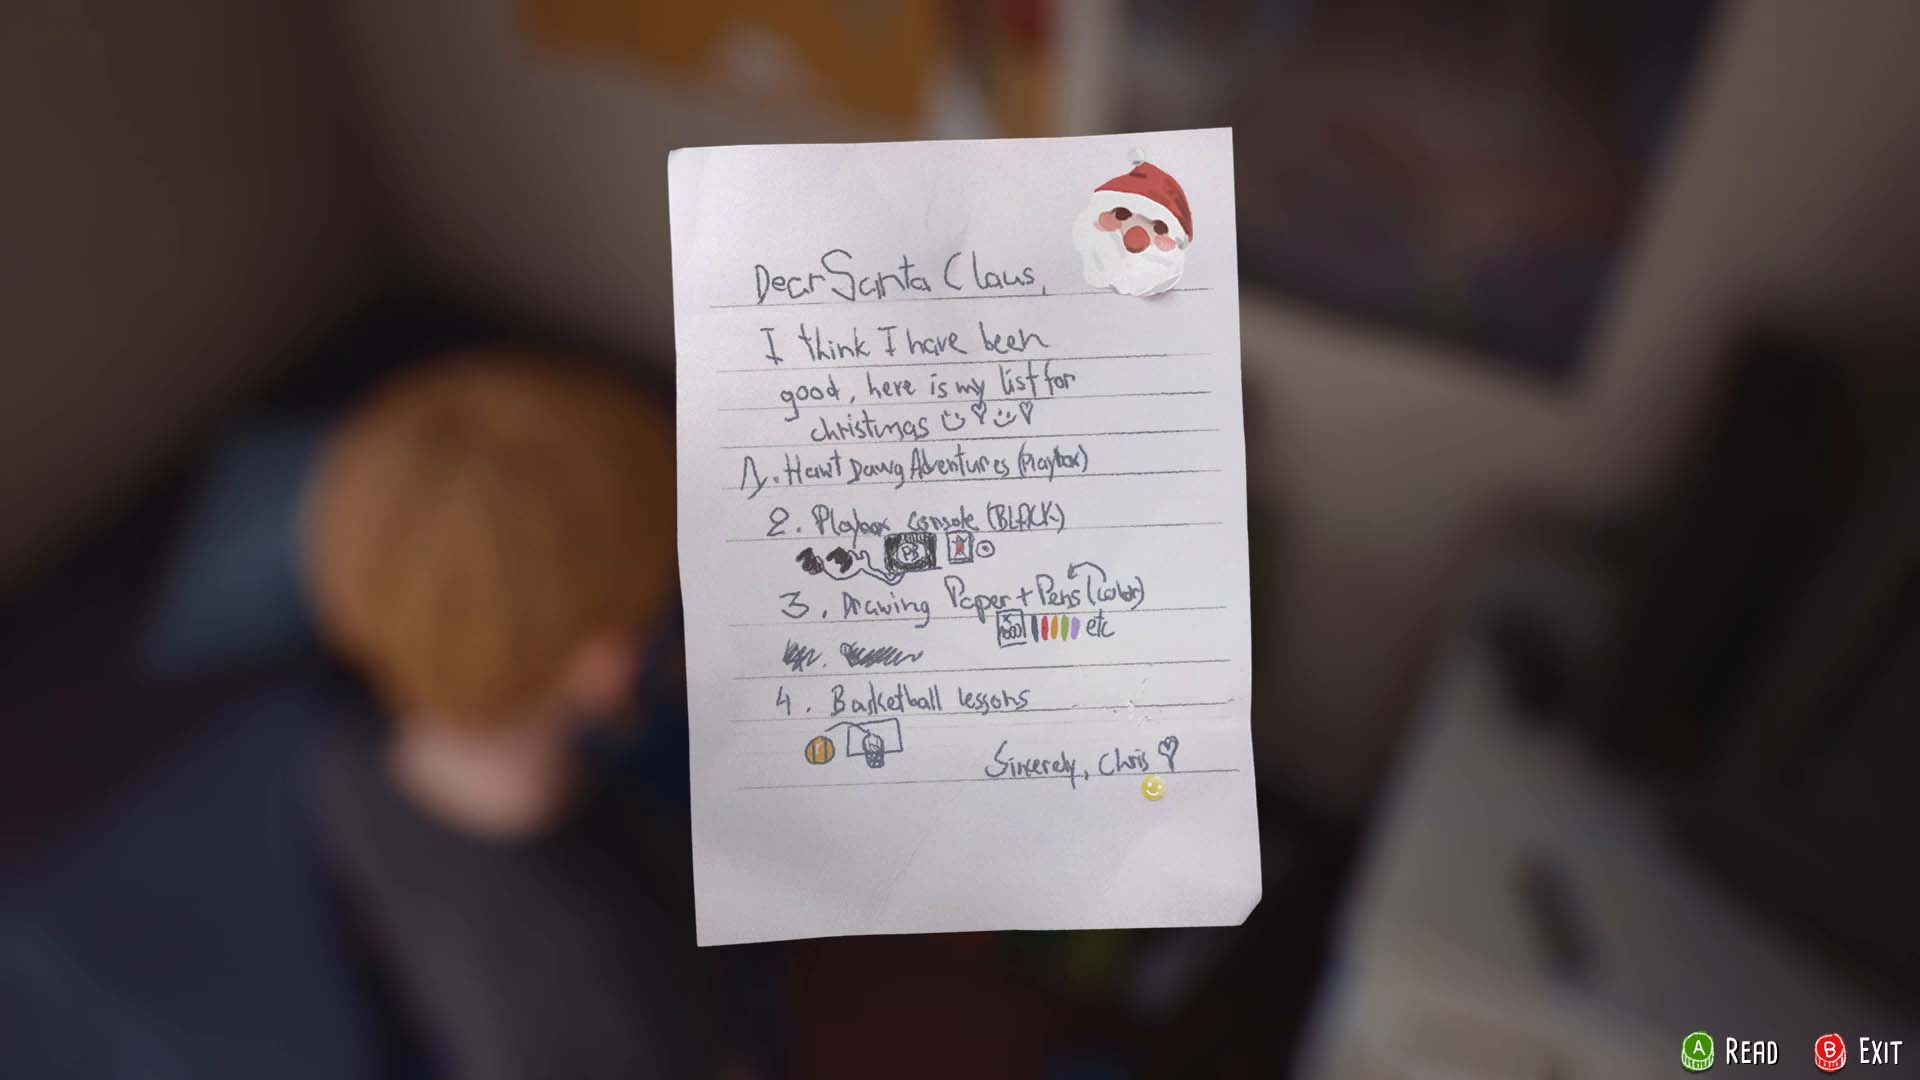 Dear Santa Claus,
I think I have been
good, here is my list for
christmas
1. Hawt Dawg Adventures (Playbox)
2. Playbox console (BLACK)
PB
3. Drawing Paper + Pens (color)
etc
4. Basketball lessons
Sincerely, Chris
A READ B EXIT